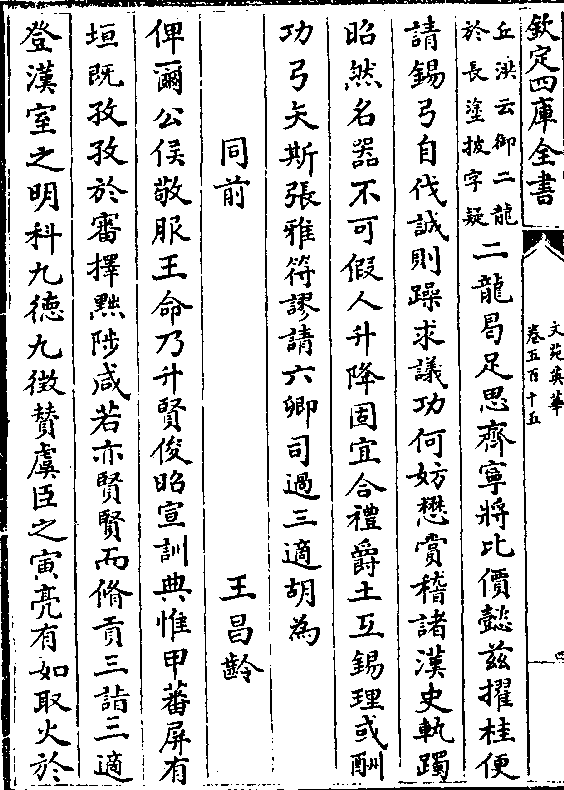 欽定四庫全書
文苑英華
卷五百十五
四
丘洪云御二龍
於長塗披字疑
二龍曷足思齊寧將比價懿兹擢桂便
請錫弓自伐誠則躁求議功何妨懋賞稽諸漢史軌躅
昭然名器不可假人升降固宜合禮爵土互錫理或酬
功弓矢斯張雅符謬請六卿司過三適胡為
同前
王昌齡
俾爾公侯敬服王命乃升賢俊昭宣訓典惟甲蕃屏有
垣既孜孜於審擇黜陟咸若亦賢賢而脩貢三詣三適
登漢室之明科九德九徴贊虞臣之寅亮有如取火於